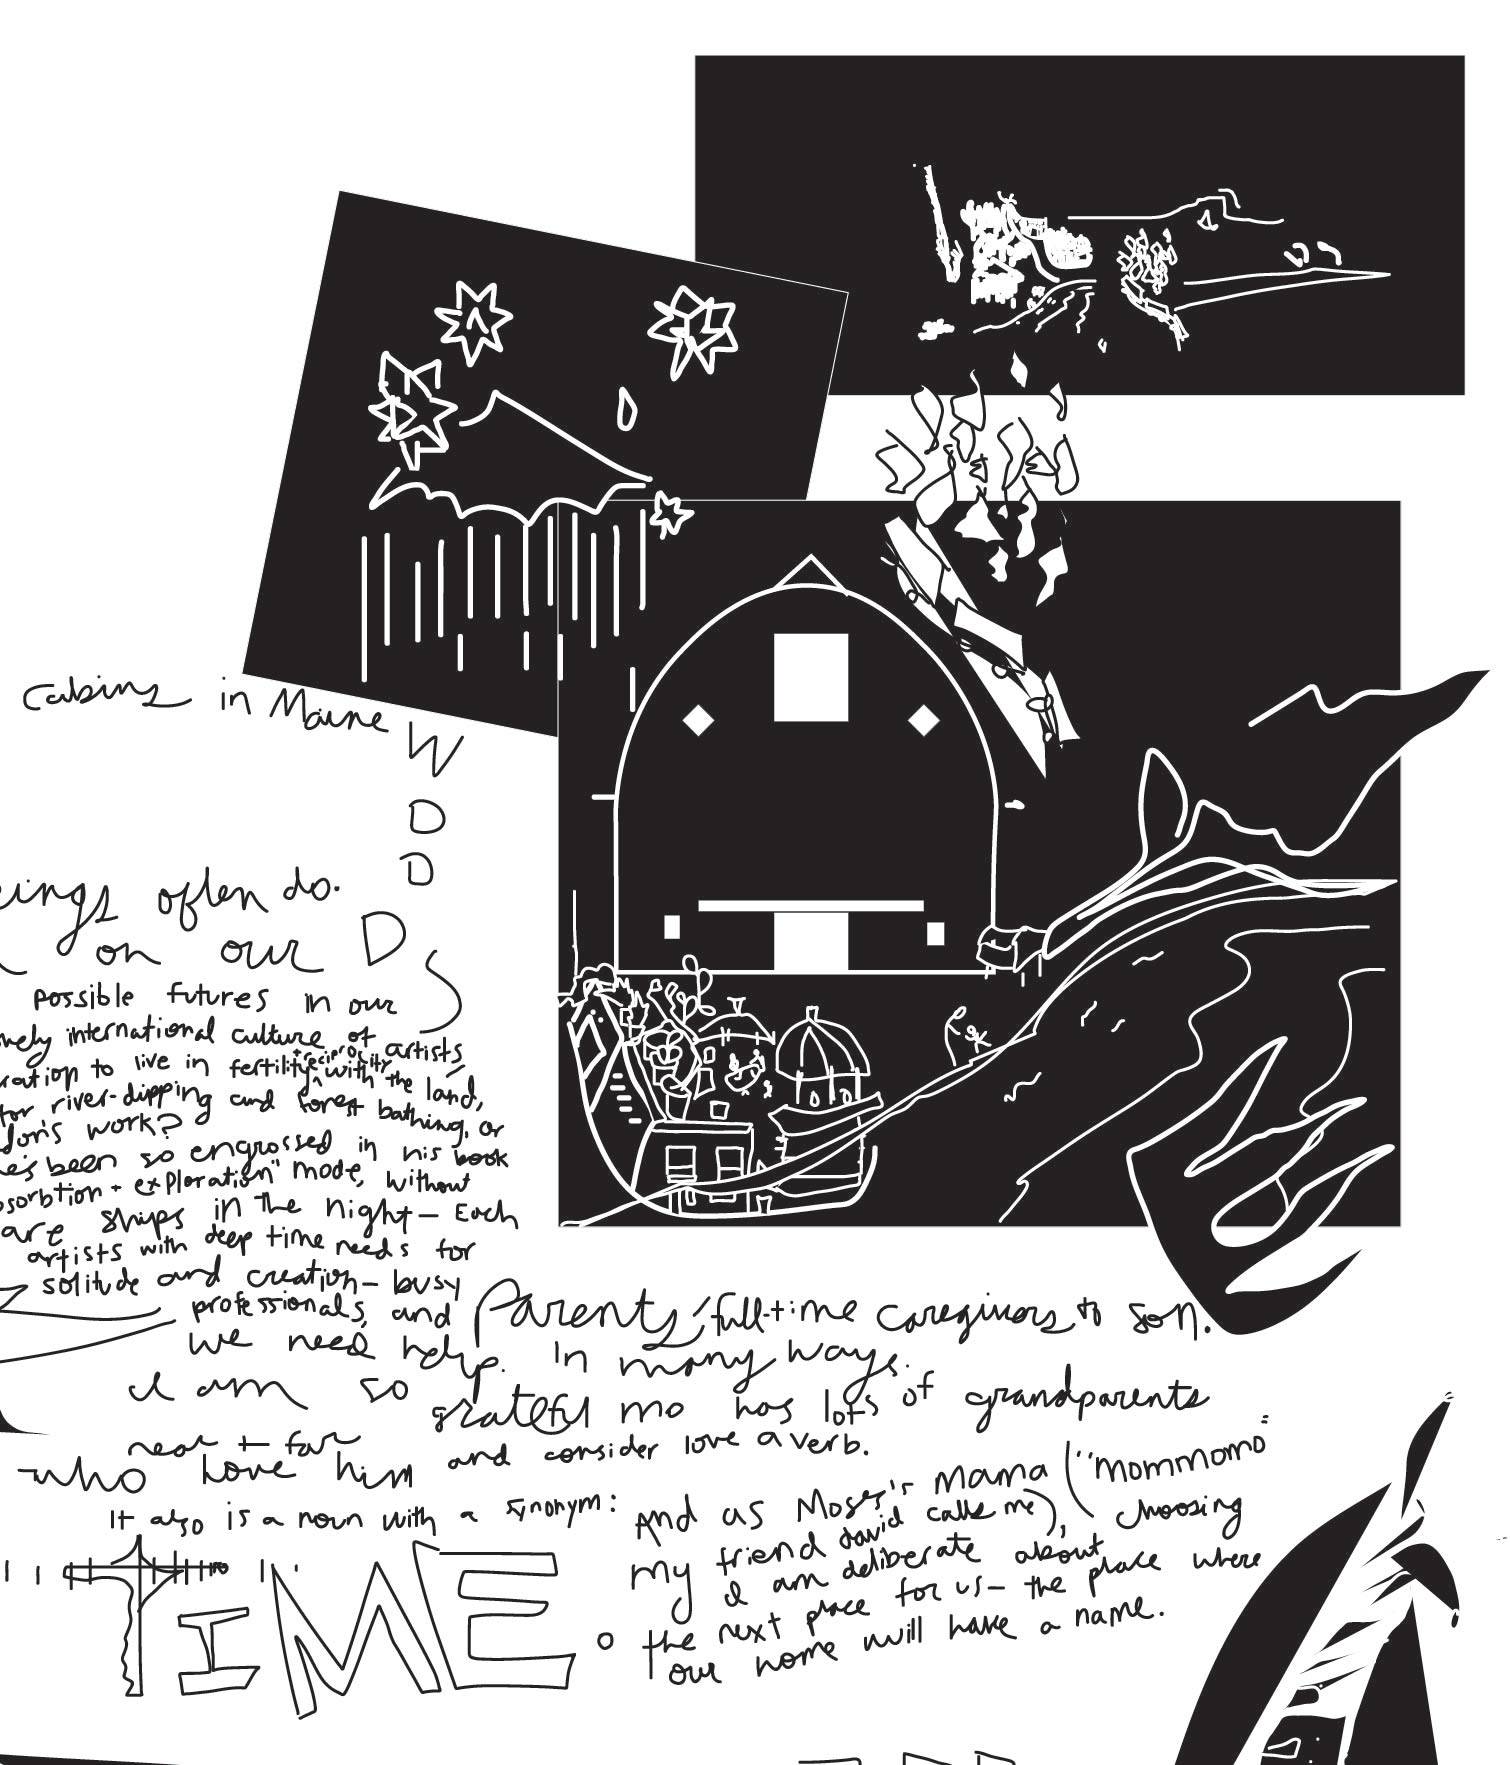 Cabins in Maine
W
O
O
D
S
eings often do.
on our
possible futures in our
international culture of artists
ration to live in fertility + reciprocity with the land,
for river-dipping and forest bathing, or
don's work?
he's been so engrossed in his book
bsorption + exploration" mode, without
are ships in the night — Each
artists with deep time needs for
solitude and creation — busy
professionals, and Parents / full-time caregivers to son.
We need help. In many ways.
I am so grateful mo has lots of grandparents
near + far
who love him and consider love a verb.
It also is a noun with a synonym:
TIME.
And as Moses's Mama ("Mommomo"
my friend david calls me), choosing
I am deliberate about
the next place for us — the place where
our home will have a name.